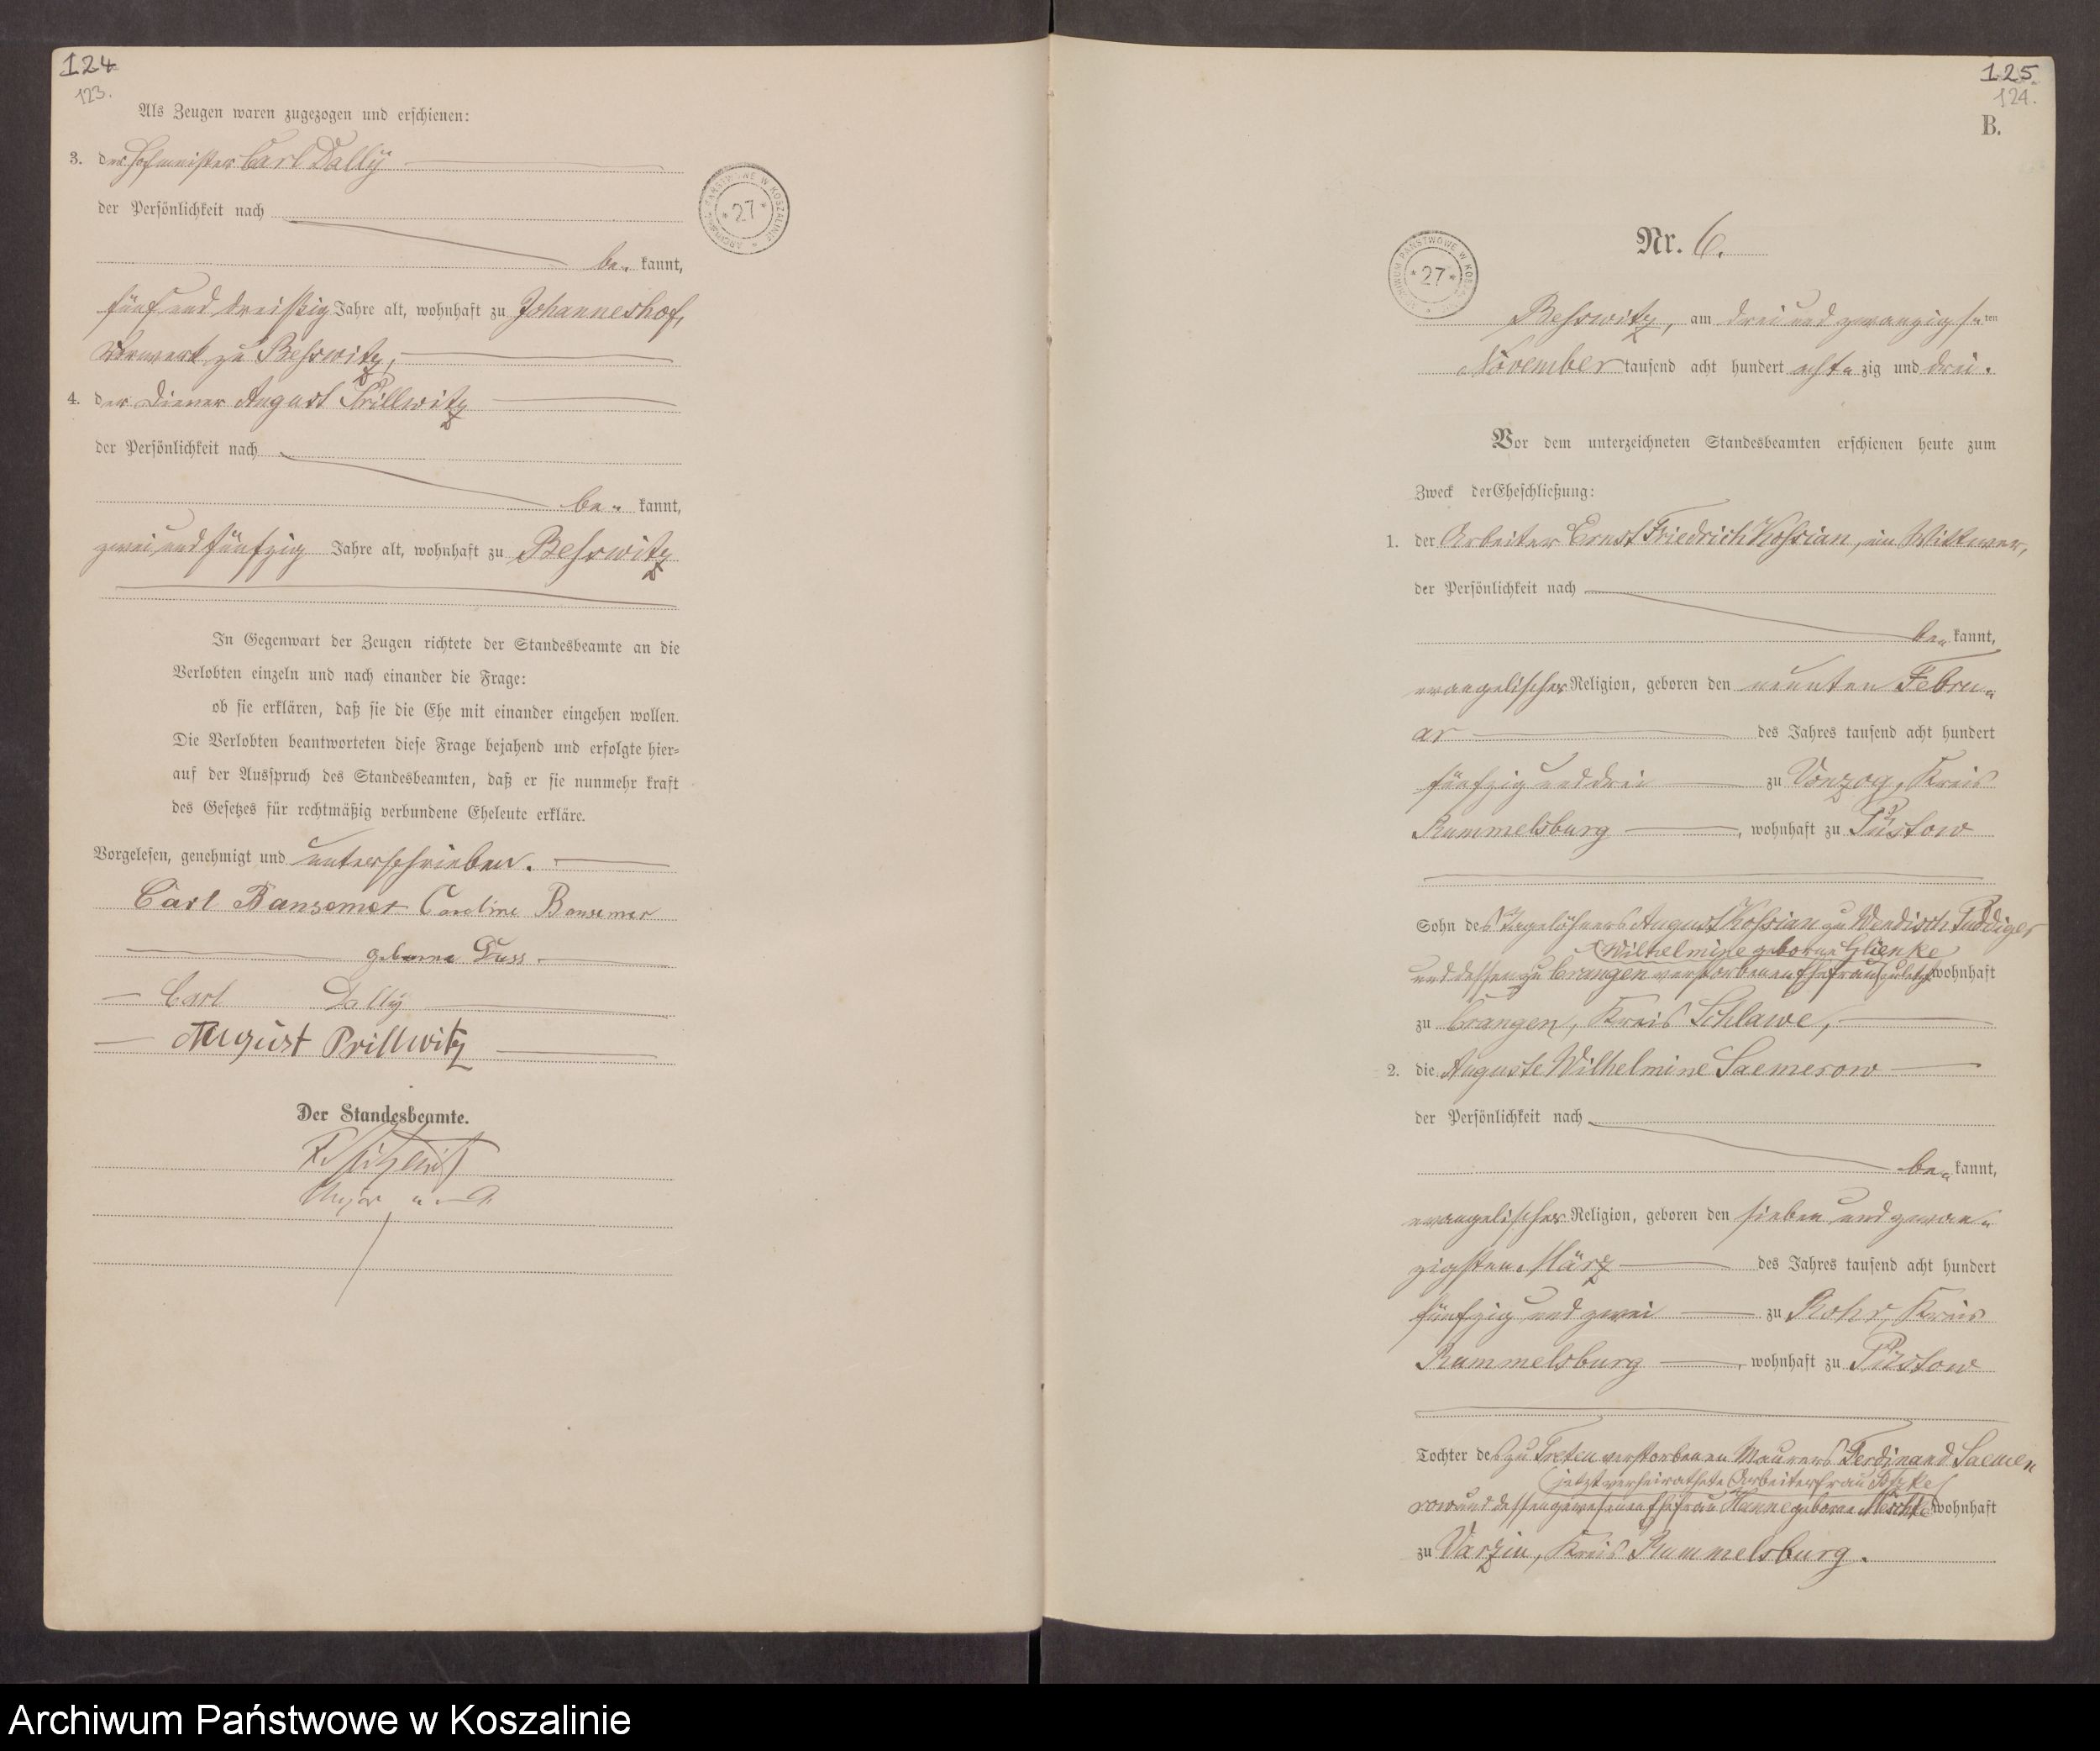 124
123.
Als Zeugen waren zugezogen und erschienen:
3. der Hofmeister Carl Dally
der Persönlichkeit nach
be- kannt,
fünf und dreißig Jahre alt, wohnhaft zu Johanneshof,
Vorwerk zu Besswitz,
4. der Diener August Prillwitz
der Persönlichkeit nach
be- kannt,
zwei und fünfzig Jahre alt, wohnhaft zu Besswitz
In Gegenwart der Zeugen richtete der Standesbeamte an die
Verlobten einzeln und nach einander die Frage:
ob sie erklären, daß sie die Ehe mit einander eingehen wollen.
Die Verlobten beantworteten diese Frage bejahend und erfolgte hier-
auf der Ausspruch des Standesbeamten, daß er sie nunmehr kraft
des Gesetzes für rechtmäßig verbundene Eheleute erkläre.
Vorgelesen, genehmigt und unterschrieben.
Carl Bansemer Caroline Bansemer
geborne Duss
Carl Dally
August Prillwitz
Der Standesbeamte.
ARCHIWUM PAŃSTWOWE W KOSZALINIE
* 27 *
125
124.
B.
ARCHIWUM PAŃSTWOWE W KOSZALINIE
* 27 *
Nr. 6.
Besswitz, am drei und zwanzigsten
November tausend acht hundert acht- zig und drei.
Vor dem unterzeichneten Standesbeamten erschienen heute zum
Zweck der Eheschließung:
1. der Arbeiter Ernst Friedrich Kossian, ein Wittwer,
der Persönlichkeit nach
be- kannt,
evangelischer Religion, geboren den neunten Febru-
ar des Jahres tausend acht hundert
fünfzig und drei zu Vonzog, Kreis
Rummelsburg, wohnhaft zu Püstow
Sohn des Tagelöhners August Kossian zu Wendisch Puddiger
Wilhelmine geborne Glienke
und dessen zu Crangen verstorbenen Ehefrau zuletzt wohnhaft
zu Crangen, Kreis Schlawe,
2. die Auguste Wilhelmine Saemerow
der Persönlichkeit nach
be- kannt,
evangelischer Religion, geboren den sieben und zwan-
zigsten März des Jahres tausend acht hundert
fünfzig und zwei zu Rohr, Kreis
Rummelsburg, wohnhaft zu Püstow
Tochter des zu Treten verstorbenen Maurers Ferdinand Saeme-
jetzt verheirathete Arbeiterfrau
row und dessen gewesenen Ehefrau Hanne geborne wohnhaft
zu Varzin, Kreis Rummelsburg.
Archiwum Państwowe w Koszalinie